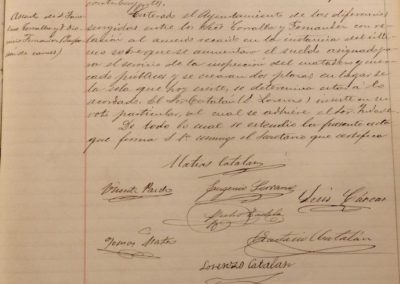 Asunto de d. Fran-
Torralba y d. Do-
Fernandez
de carnes)
Enterado el Ayuntamiento de las diferencias
surgidas entre los Sres Torralba y Fernandez con re-
lación al acuerdo recaido en la instancia del últi-
mo sobre que se aumentara el sueldo asignado pa-
ra el servicio de la inspección del matadero y mer-
cado públicos y se crearan dos plazas en lugar de
la sola que hoy existe, se determina estar a lo
acordado. El Sor Catalan (d. Lorenzo) emite en su
voto particular, al cual se adhiere el Sor
De todo lo cual se extendio la presente acta
que firma S. Sª conmigo el Secretario que certifico
Matias Catalan
Vicente Pardo
Eugenio Serrano
Luis Cáncas
Pedro
Tomas Mata
Catalán
Lorenzo Catalan